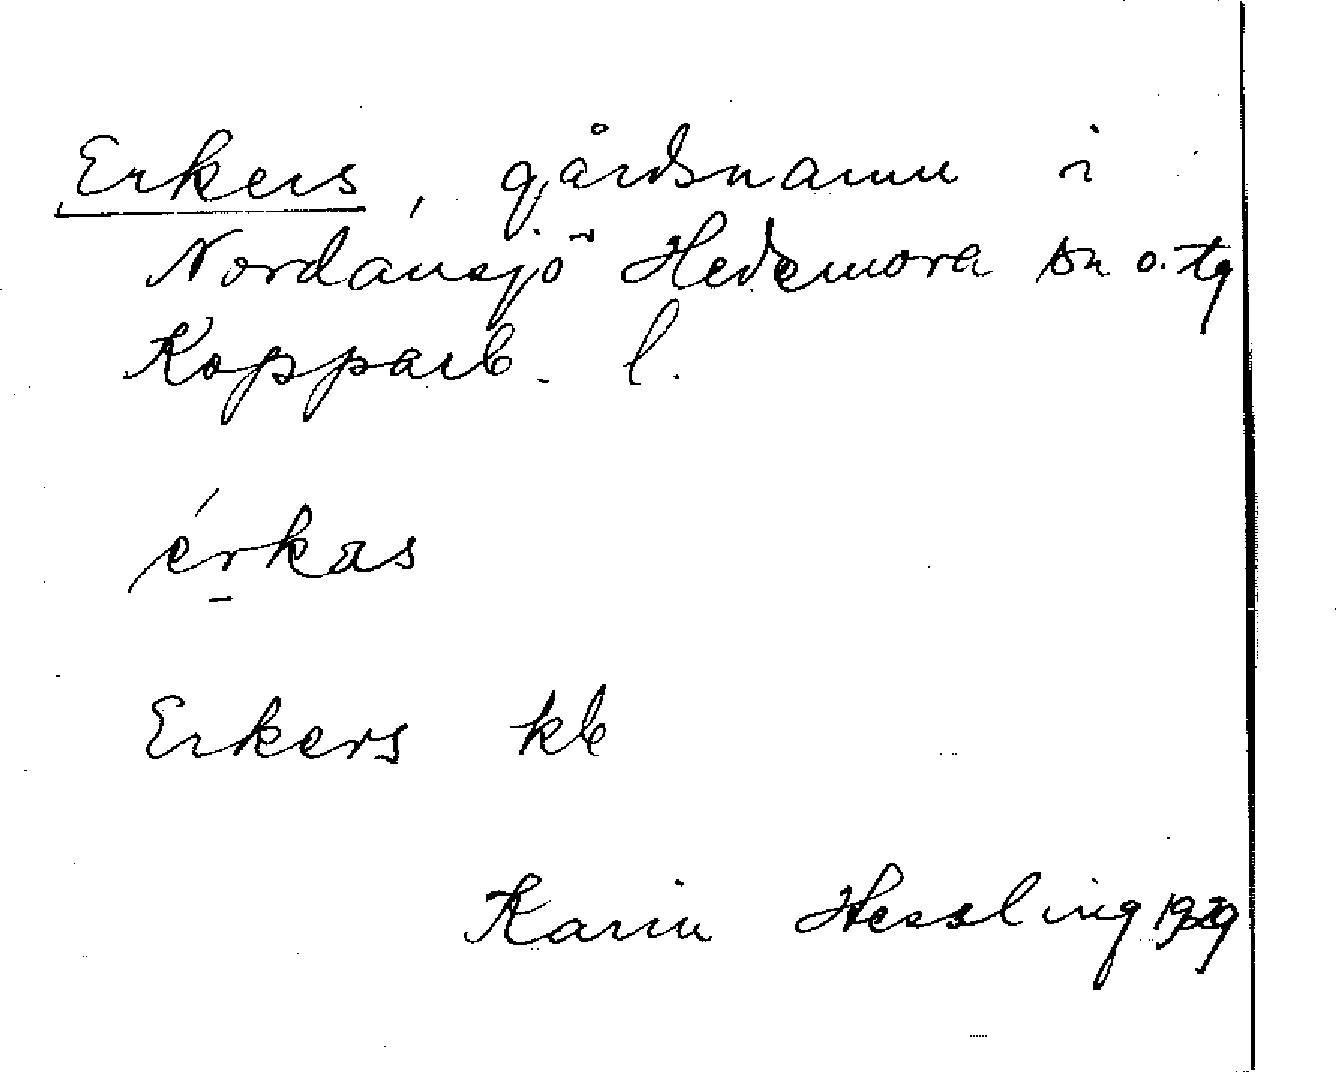 Erkers, gårdsnamn i
Nordansjö Hedemora sn o. tg
Kopparb. l.
érkas
Erkers kb
Karin Hessling 1929